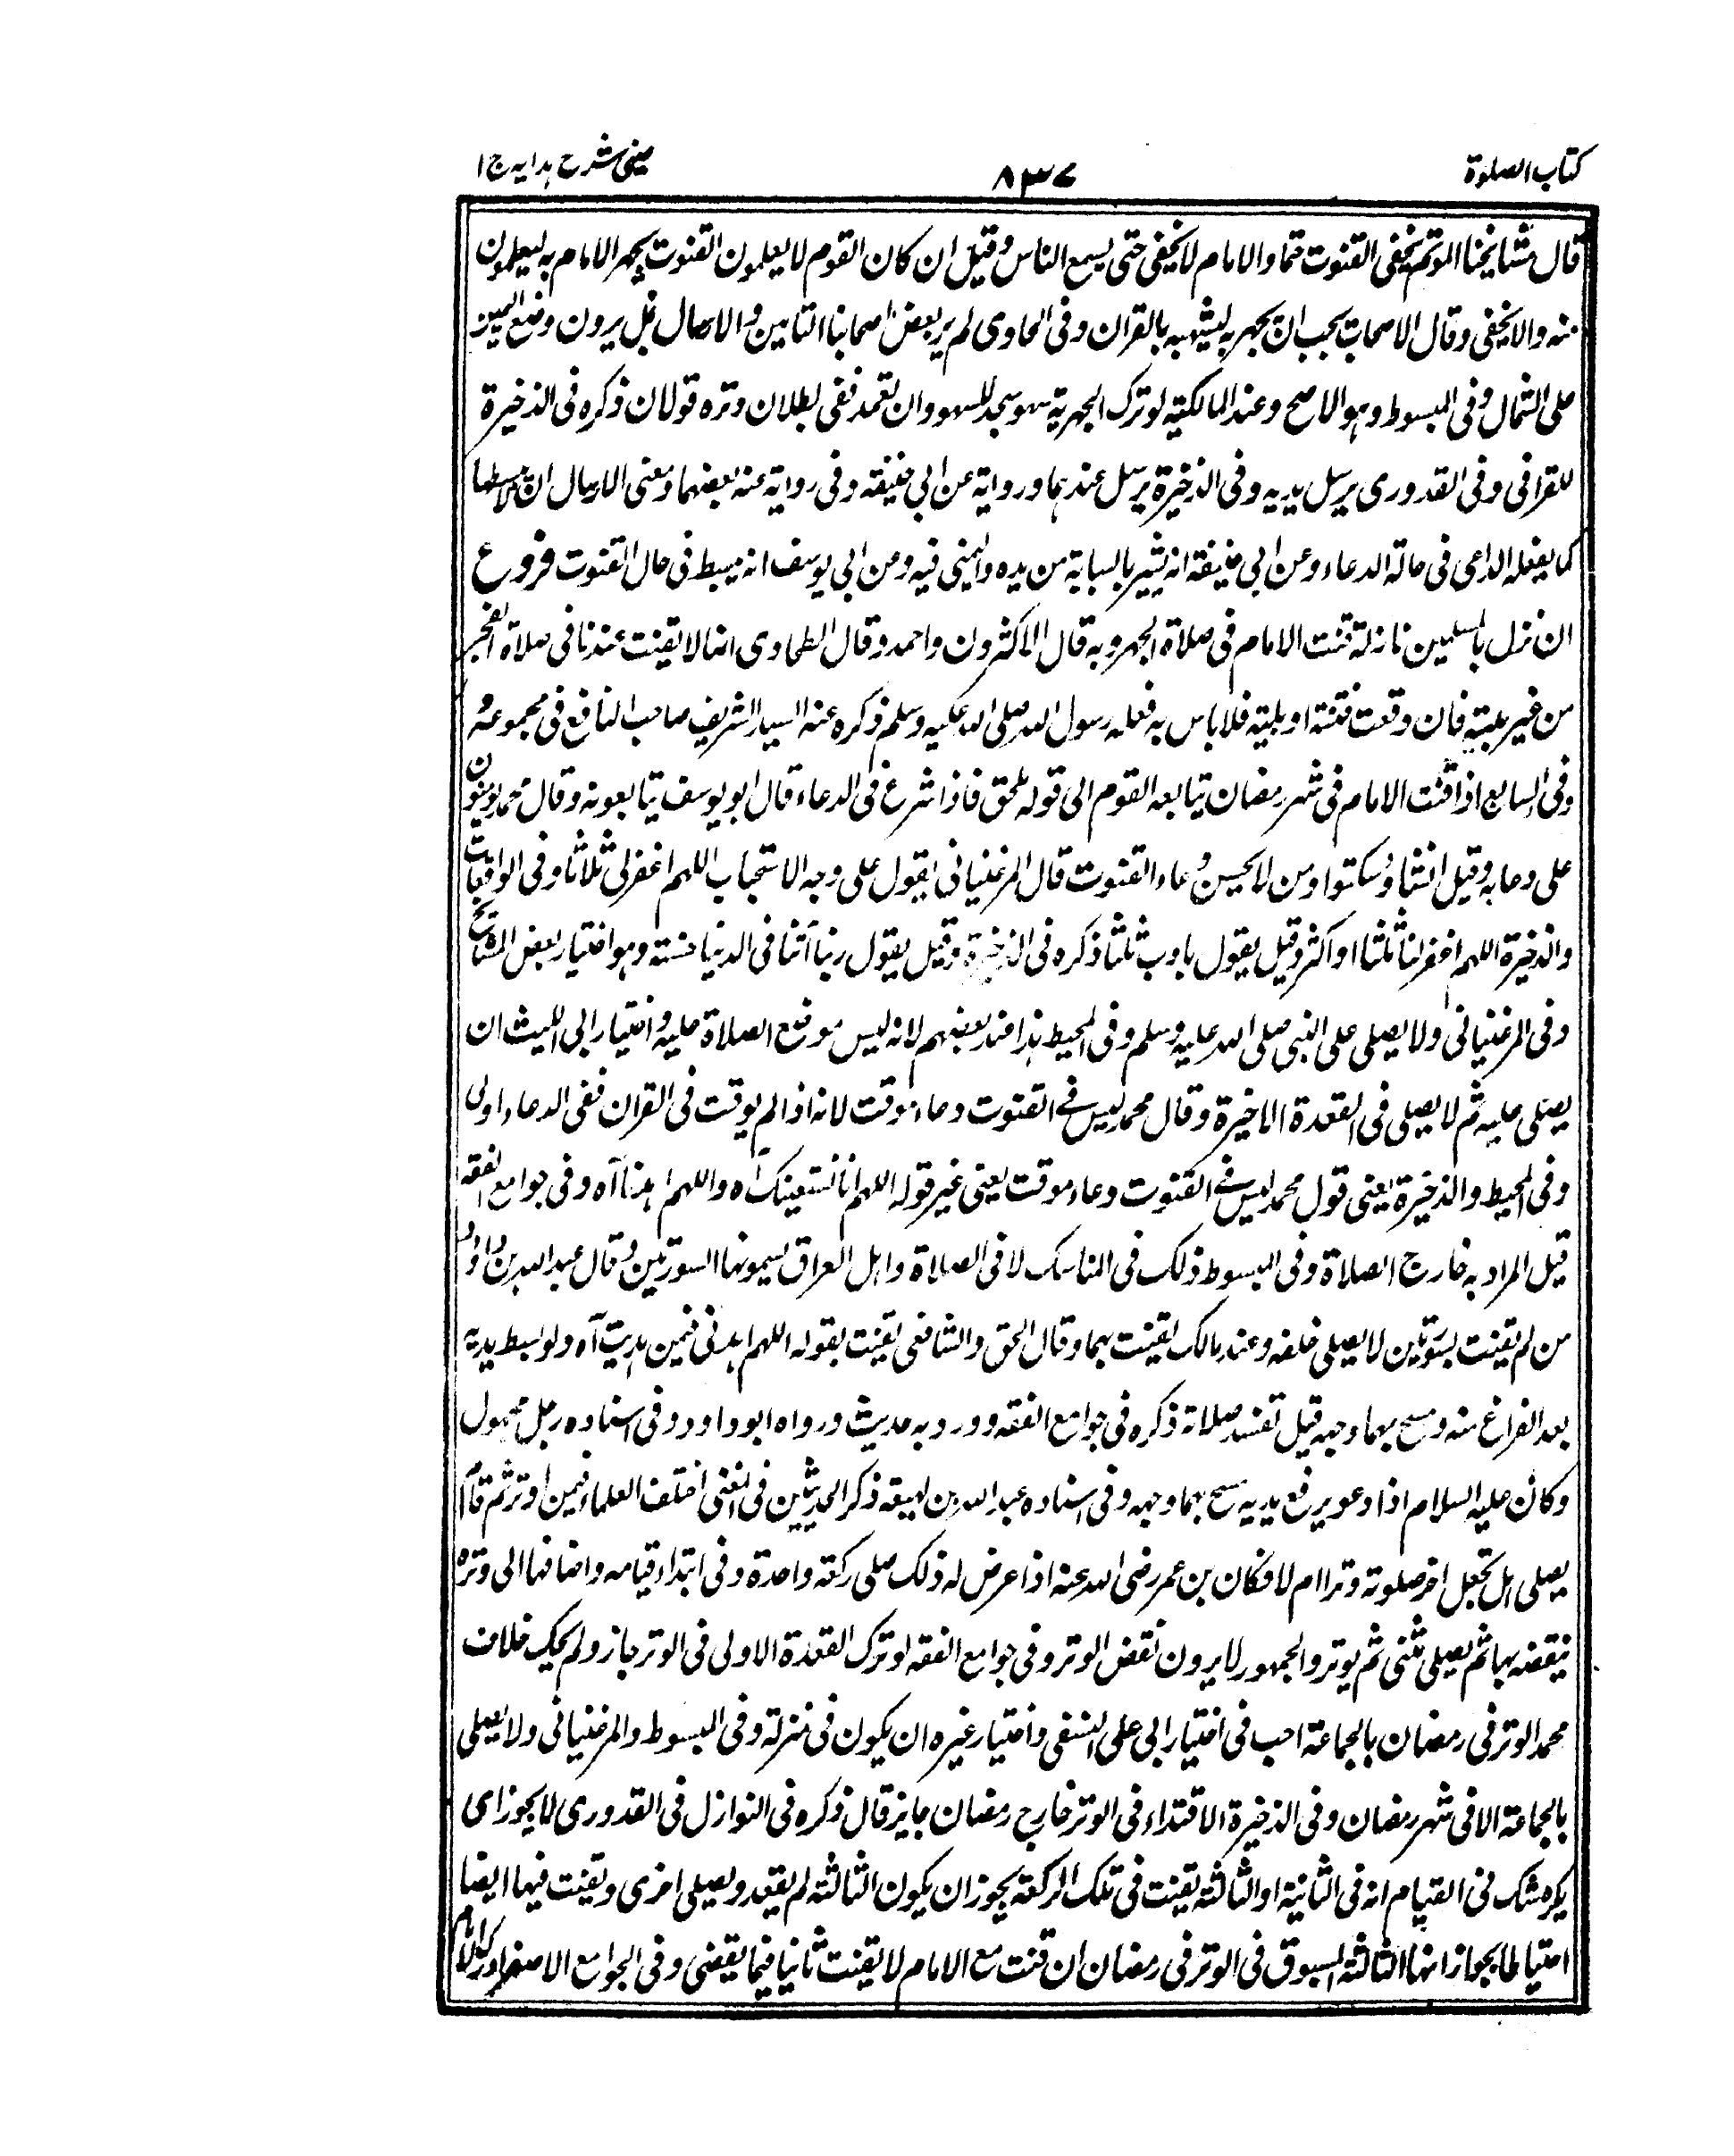 كتاب الصلوة
٨٣٧
عينى شرح ہدايه ج ١
قال مشايخنا الموتم يخفى القنوت حتما والامام لا يخفى حتى يسمع الناس وقيل ان كان القوم لا يعلمون القنوت يجهر الامام به ليعلمون
منه والا يخفى وقال الاصحاب يجب ان يجهر به ليشبهه بالقران وفى الحاوى لم ير بعض اصحابنا التامين والارسال بل يرون وضع اليمين
على الشمال وفى المبسوط وہو الاصح وعند المالكية لو ترك الجهرية سہو سجد للسهو وان تعمد ففى بطلان وتره قولان ذكره فى الذخيرة
للقرافى وفى القدورى يرسل يديه وفى الذخيرة يرسل عندہما ورواية عن ابى حنيفة وفى رواية عنه يضعهما ومعنى الارسال ان لا يبسطها
كما يفعله الداعى فى حالة الدعاء وعن ابى حنيفة انه يشير بالسبابة من يده واليمنى فيه وعن ابى يوسف انه يبسط فى حال القنوت فروع
ان نزل بالمسلمين نازلة قنت الامام فى صلاة الجهر وبه قال الاكثرون واحمد وقال الطحاوى انما لا يقنت عندنا فى صلاة الفجر
من غير بلية فان وقعت فتنة او بلية فلا باس به فعله رسول الله صلى الله عليه وسلم ذكره عنه السيد الشريف صاحب النافع فى مجموعه و
وفى السابع اذا قنت الامام فى شهر رمضان يتابعه القوم الى قوله ملحق فاذا شرع فى الدعاء قال ابو يوسف يتابعونه وقال محمد يومنون
على دعايه وقيل انشاؤ سكتوا ومن لا يحسن دعاء القنوت قال المرغنيانى يقول على وجه الاستحباب اللهم اغفرلى ثلاثا وفى الواقعات
والذخيرة اللهم اغفرلنا ثلثا او اكثر وقيل يقول يا رب ثلثا ذكره فى الذخيرة وقيل يقول ربنا آتنا فى الدنيا حسنة وہو اختيار بعض المشايخ
وفى المرغنيانى ولا يصلى على النبى صلى الله عليه وسلم وفى المحيط ہذا عند بعضہم لانه ليس موضع الصلاة عليه واختيار ابى الليث ان
يصلى عليه ثم لا يصلى فى القعدة الاخيرة وقال محمد ليس فى القنوت دعاء موقت لانه اذا لم يوقت فى القران ففى الدعاء اولى
وفى المحيط والذخيرة يعنى قول محمد ليس فى القنوت دعاء موقت يعنى غير قوله اللهم انا نستعينك آه واللهم اہدنا آه وفى جوامع الفقه
قيل المراد به خارج الصلاة وفى المبسوط ذلك فى المناسك لا فى الصلاة واہل العراق يسمونها السورتين وقال عبد الله بن داود
من لم يقنت بسورتين لا يصلى خلفه وعند مالك يقنت بهما وقال اسحق والشافعى يقنت بقوله اللهم اہدنى فيمن ہديت آه ولو بسط يديه
بعد الفراغ منه ومسح بهما وجهه قيل تفسد صلاته ذكره فى جوامع الفقه وورد به حديث ورواه ابو داود وفى اسناده رجل مجهول
وكان عليه السلام اذا دعو يرفع يديه مسح بهما وجهه وفى اسناده عبد الله بن لهيعة ذكر الحديثين فى المغنى اختلف العلماء فيمن اوتر ثم قام
يصلى ہل يجعل اخر صلوته وترا ام لا فكان بن عمر رضى الله عنه اذا عرض له ذلك صلى ركعة واحدة وفى ابتداء قيامه واضافها الى وتره
فينقضه بها ثم يصلى مثنى ثم يوتر والجمهور لا يرون نقض الوتر وفى جوامع الفقه لو ترك القعدة الاولى فى الوتر جاز ولم يحك خلاف
محمد الوتر فى رمضان بالجماعة احب فى اختيار ابى على النسفى واختيار غيره ان يكون فى منزلة وفى المبسوط والمرغنيانى ولا يصلى
بالجماعة الا فى شهر رمضان وفى الذخيرة الاقتداء فى الوتر خارج رمضان جايز قال ذكره فى النوازل فى القدورى لا يجوز اى
يكره شك فى القيام انه فى الثانية او الثالثة يقنت فى تلك الركعة يجوز ان يكون الثالثة لم يقعد ويصلى اخرى ويقنت فيها ايضا
احتياطا لجواز انها الثالثة المسبوق فى الوتر فى رمضان ان قنت مع الامام لا يقنت ثانيا فيما يقضى وفى الجوامع الاصغر ادرك الامام